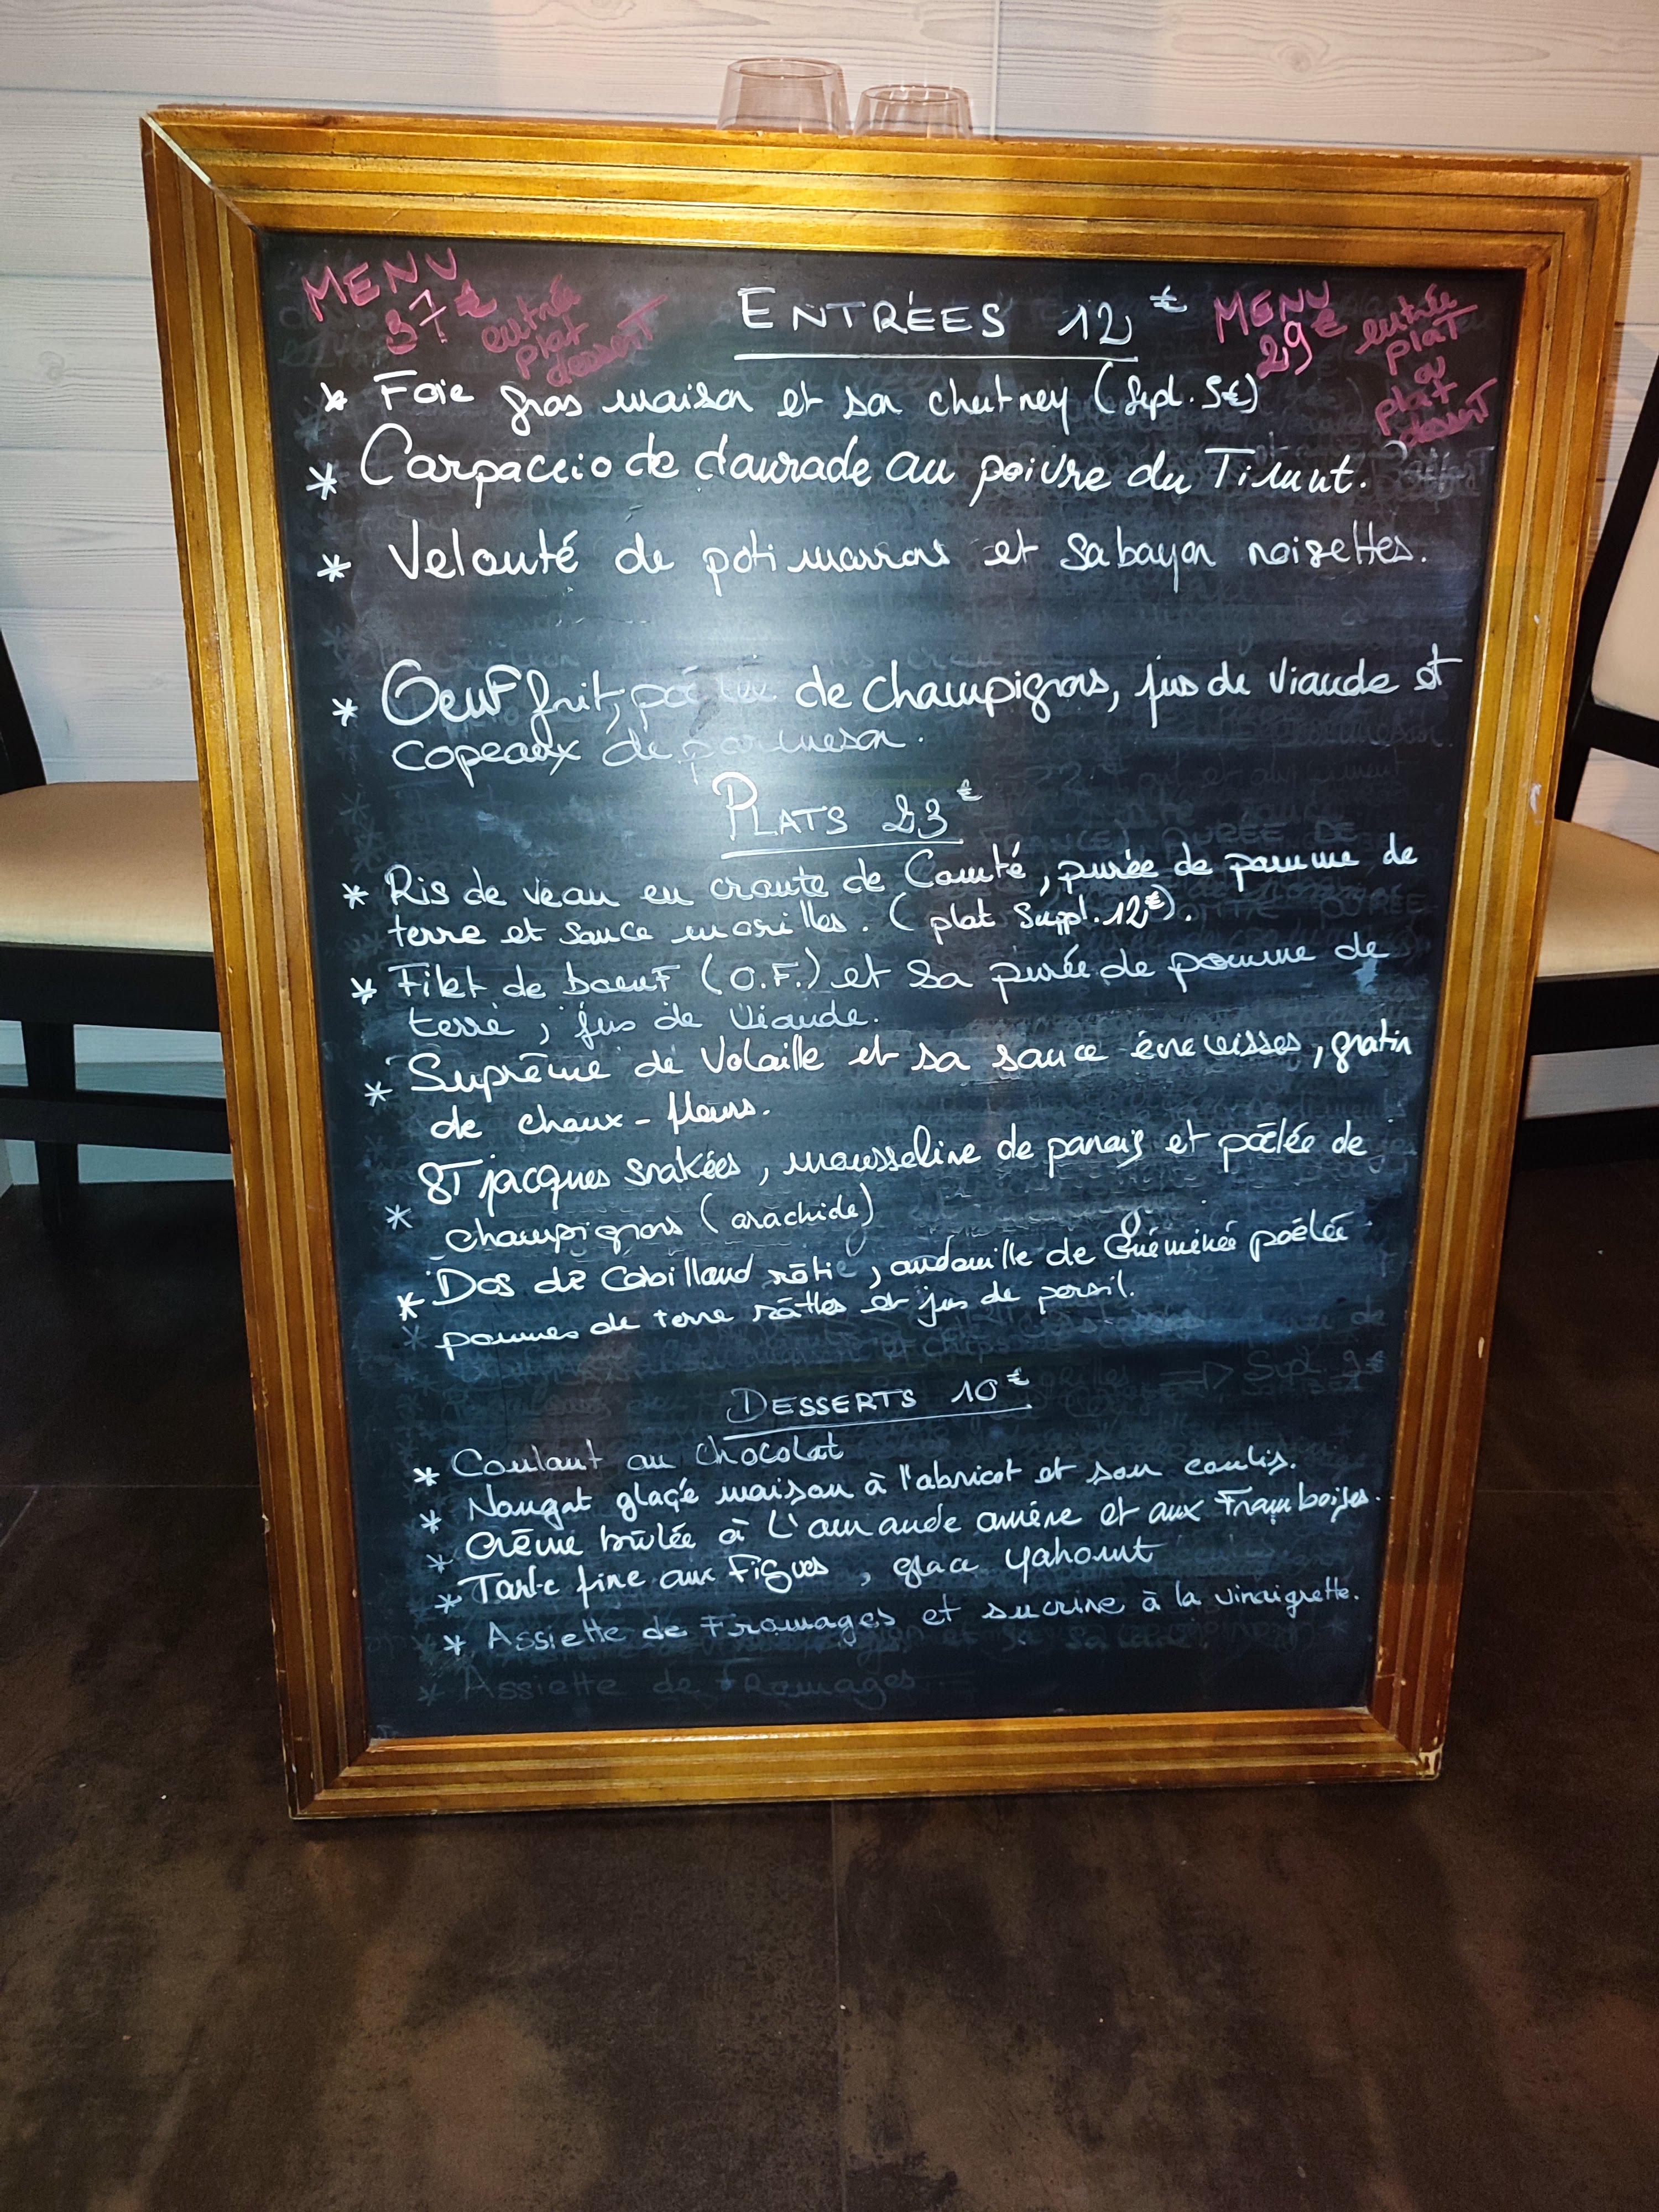 MENU
37€
entrée
plat
dessert
ENTRÉES 12€
MENU
29€
entrée
plat
ou
plat
dessert
* Foie gras maison et son chutney (Supl. 5€)
* Carpaccio de daurade au poivre du Timut.
* Velouté de potimarrons et Sabayon noisettes.
* Oeuf frit, poêlée de champignons, jus de viande et
copeaux de parmesan.
PLATS 23€
* Ris de veau en croute de Comté, purée de pomme de
terre et sauce morilles. (plat Suppl. 12€).
* Filet de boeuf (O.F.) et sa purée de pomme de
terre, jus de viande.
* Suprême de Volaille et sa sauce écrevisses, gratin
de choux-fleurs.
* ST jacques snakées, mousseline de panais et poêlée de
champignons (arachide)
* Dos de Cabillaud rôtie, andouille de Guémenée poêlée
pommes de terre râttes et jus de persil.
DESSERTS 10€
* Coulant au chocolat
* Nougat glaçé maison à l'abricot et son coulis.
* Crême brûlée à L'amande amère et aux Framboises.
* Tarte fine aux Figues, glace yahourt
* Assiette de Fromages et sucrine à la vinaigrette.
* Assiette de Fromages